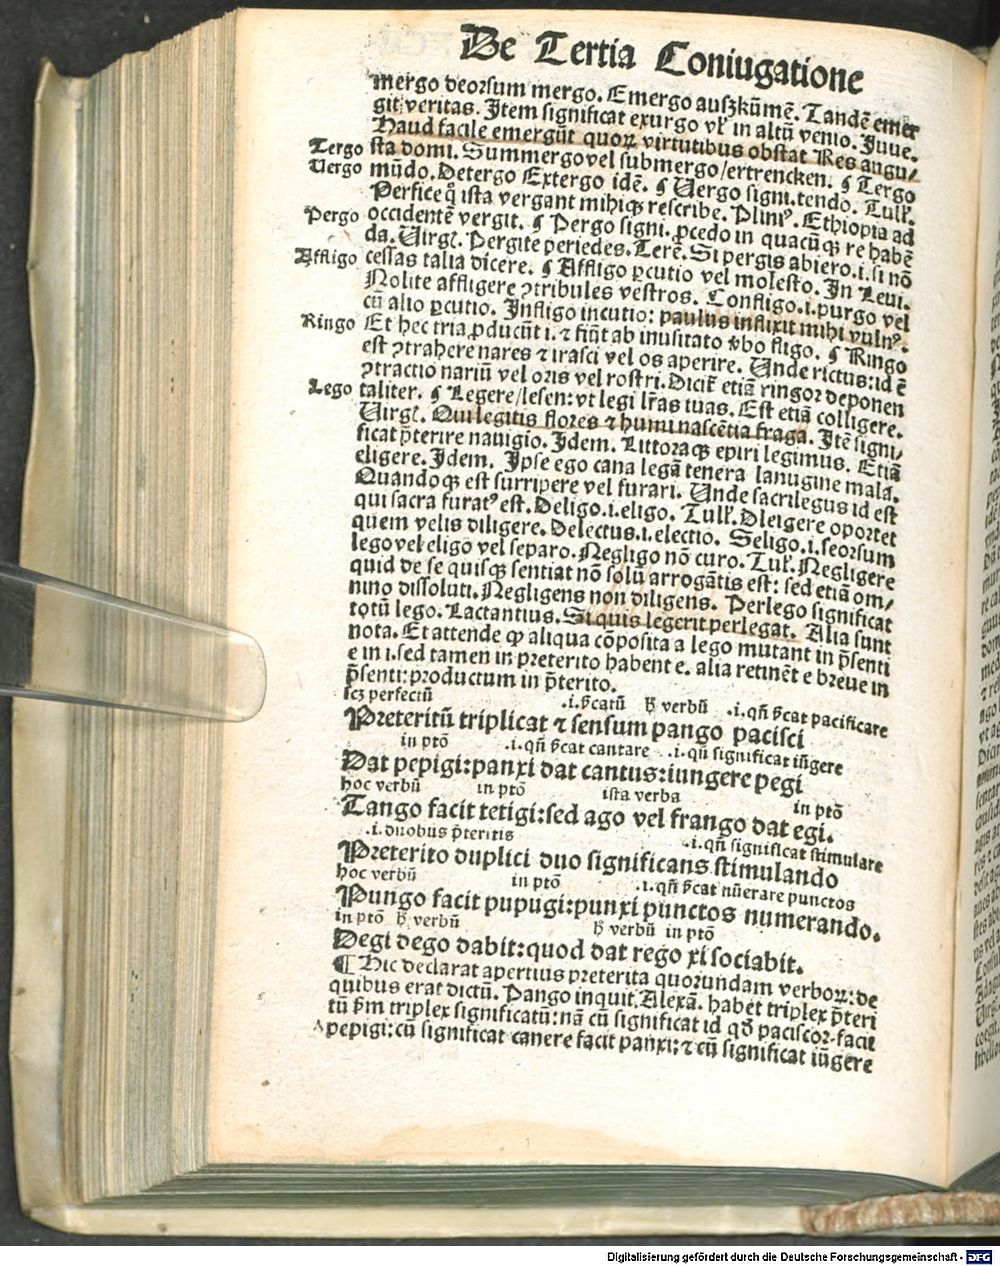 De Tertia Coniugatione
mergo deorsum mergo. Emergo auszkūmē. Tandē emer
git veritas. Item significat exurgo vl' in altū venio. Juue.
Haud facile emergūt quoꝝ virtutibus obstat Res angu/
Tergo sta domi. Summergo vel submergo/ertrencken. ¶ Tergo
Uergo mūdo. Detergo Extergo idē. ¶ Uergo signi. tendo. Tull'.
Perfice q̄ ista vergant mihiqꝫ rescribe. Pliniꝰ. Ethiopia ad
Pergo occidentē vergit. ¶ Pergo signi. ꝓcedo in quacūqꝫ re habē
da. Uirgl. Pergite pierides. Terē. Si pergis abiero .i. si nō
Affligo cessas talia dicere. ¶ Affligo ꝑcutio vel molesto. In Leui.
Nolite affligere ꝯtribules vestros. Confligo .i. purgo vel
cū alio ꝑcutio. Infligo incutio: paulus inflixit mihi vulnꝰ.
Ringo Et hec tria ꝓducūt i. ⁊ fiūt ab inusitato v̄bo fligo. ¶ Ringo
est ꝯtrahere nares ⁊ irasci vel os aperire. Unde rictus: id ē
ꝯtractio nariū vel oris vel rostri. Dicit̄ etiā ringor deponen
Lego taliter. ¶ Legere/lesen: vt legi lr̄as tuas. Est etiā colligere.
Uirgl. Qui legitis flores ⁊ humi nascētia fraga. Itē signi/
ficat p̄terire nauigio. Idem. Littoraqꝫ epiri legimus. Etiā
eligere. Idem. Ipse ego cana legā tenera lanugine mala.
Quandoqꝫ est surripere vel furari. Unde sacrilegus id est
qui sacra furatꝰ est. Deligo .i. eligo. Tull'. Dleigere oportet
quem velis diligere. Delectus .i. electio. Seligo .i. seorsum
lego vel eligo vel separo. Negligo nō curo. Tul'. Negligere
quid de se quisqꝫ sentiat nō solū arrogātis est: sed etiā om/
nino dissoluti. Negligens non diligens. Perlego significat
totū lego. Lactantius. Si quis legerit perlegat. Alia sunt
nota. Et attende ꝙ aliqua cōposita a lego mutant in p̄senti
e in i. sed tamen in preterito habent e. alia retinēt e breue in
p̄senti: productum in p̄terito.
scꝫ perfectū .i. s̄catū h̄ verbū .i. qn̄ s̄cat pacificare
Preteritū triplicat ⁊ sensum pango pacisci
in ptō .i. qn̄ s̄cat cantare .i. qn̄ significat iūgere
Dat pepigi: panxi dat cantus: iungere pegi
hoc verbū in ptō ista verba in ptō
Tango facit tetigi: sed ago vel frango dat egi.
.i. duobus p̄teritis .i. qn̄ significat stimulare
Preterito duplici duo significans stimulando
hoc verbū in ptō .i. qn̄ s̄cat nūerare punctos
Pungo facit pupugi: punxi punctos numerando.
in ptō h̄ verbū h̄ verbū in ptō
Degi dego dabit: quod dat rego xi sociabit.
¶ Hic declarat apertius preterita quorundam verboꝝ: de
quibus erat dictū. Pango inquit Alexā. habet triplex p̄teri
tū ẜm triplex significatū: nā cū significat id qd̄ paciscor facit
pepigi: cū significat canere facit panxi: ⁊ cū significat iūgere
Digitalisierung gefördert durch die Deutsche Forschungsgemeinschaft - DFG